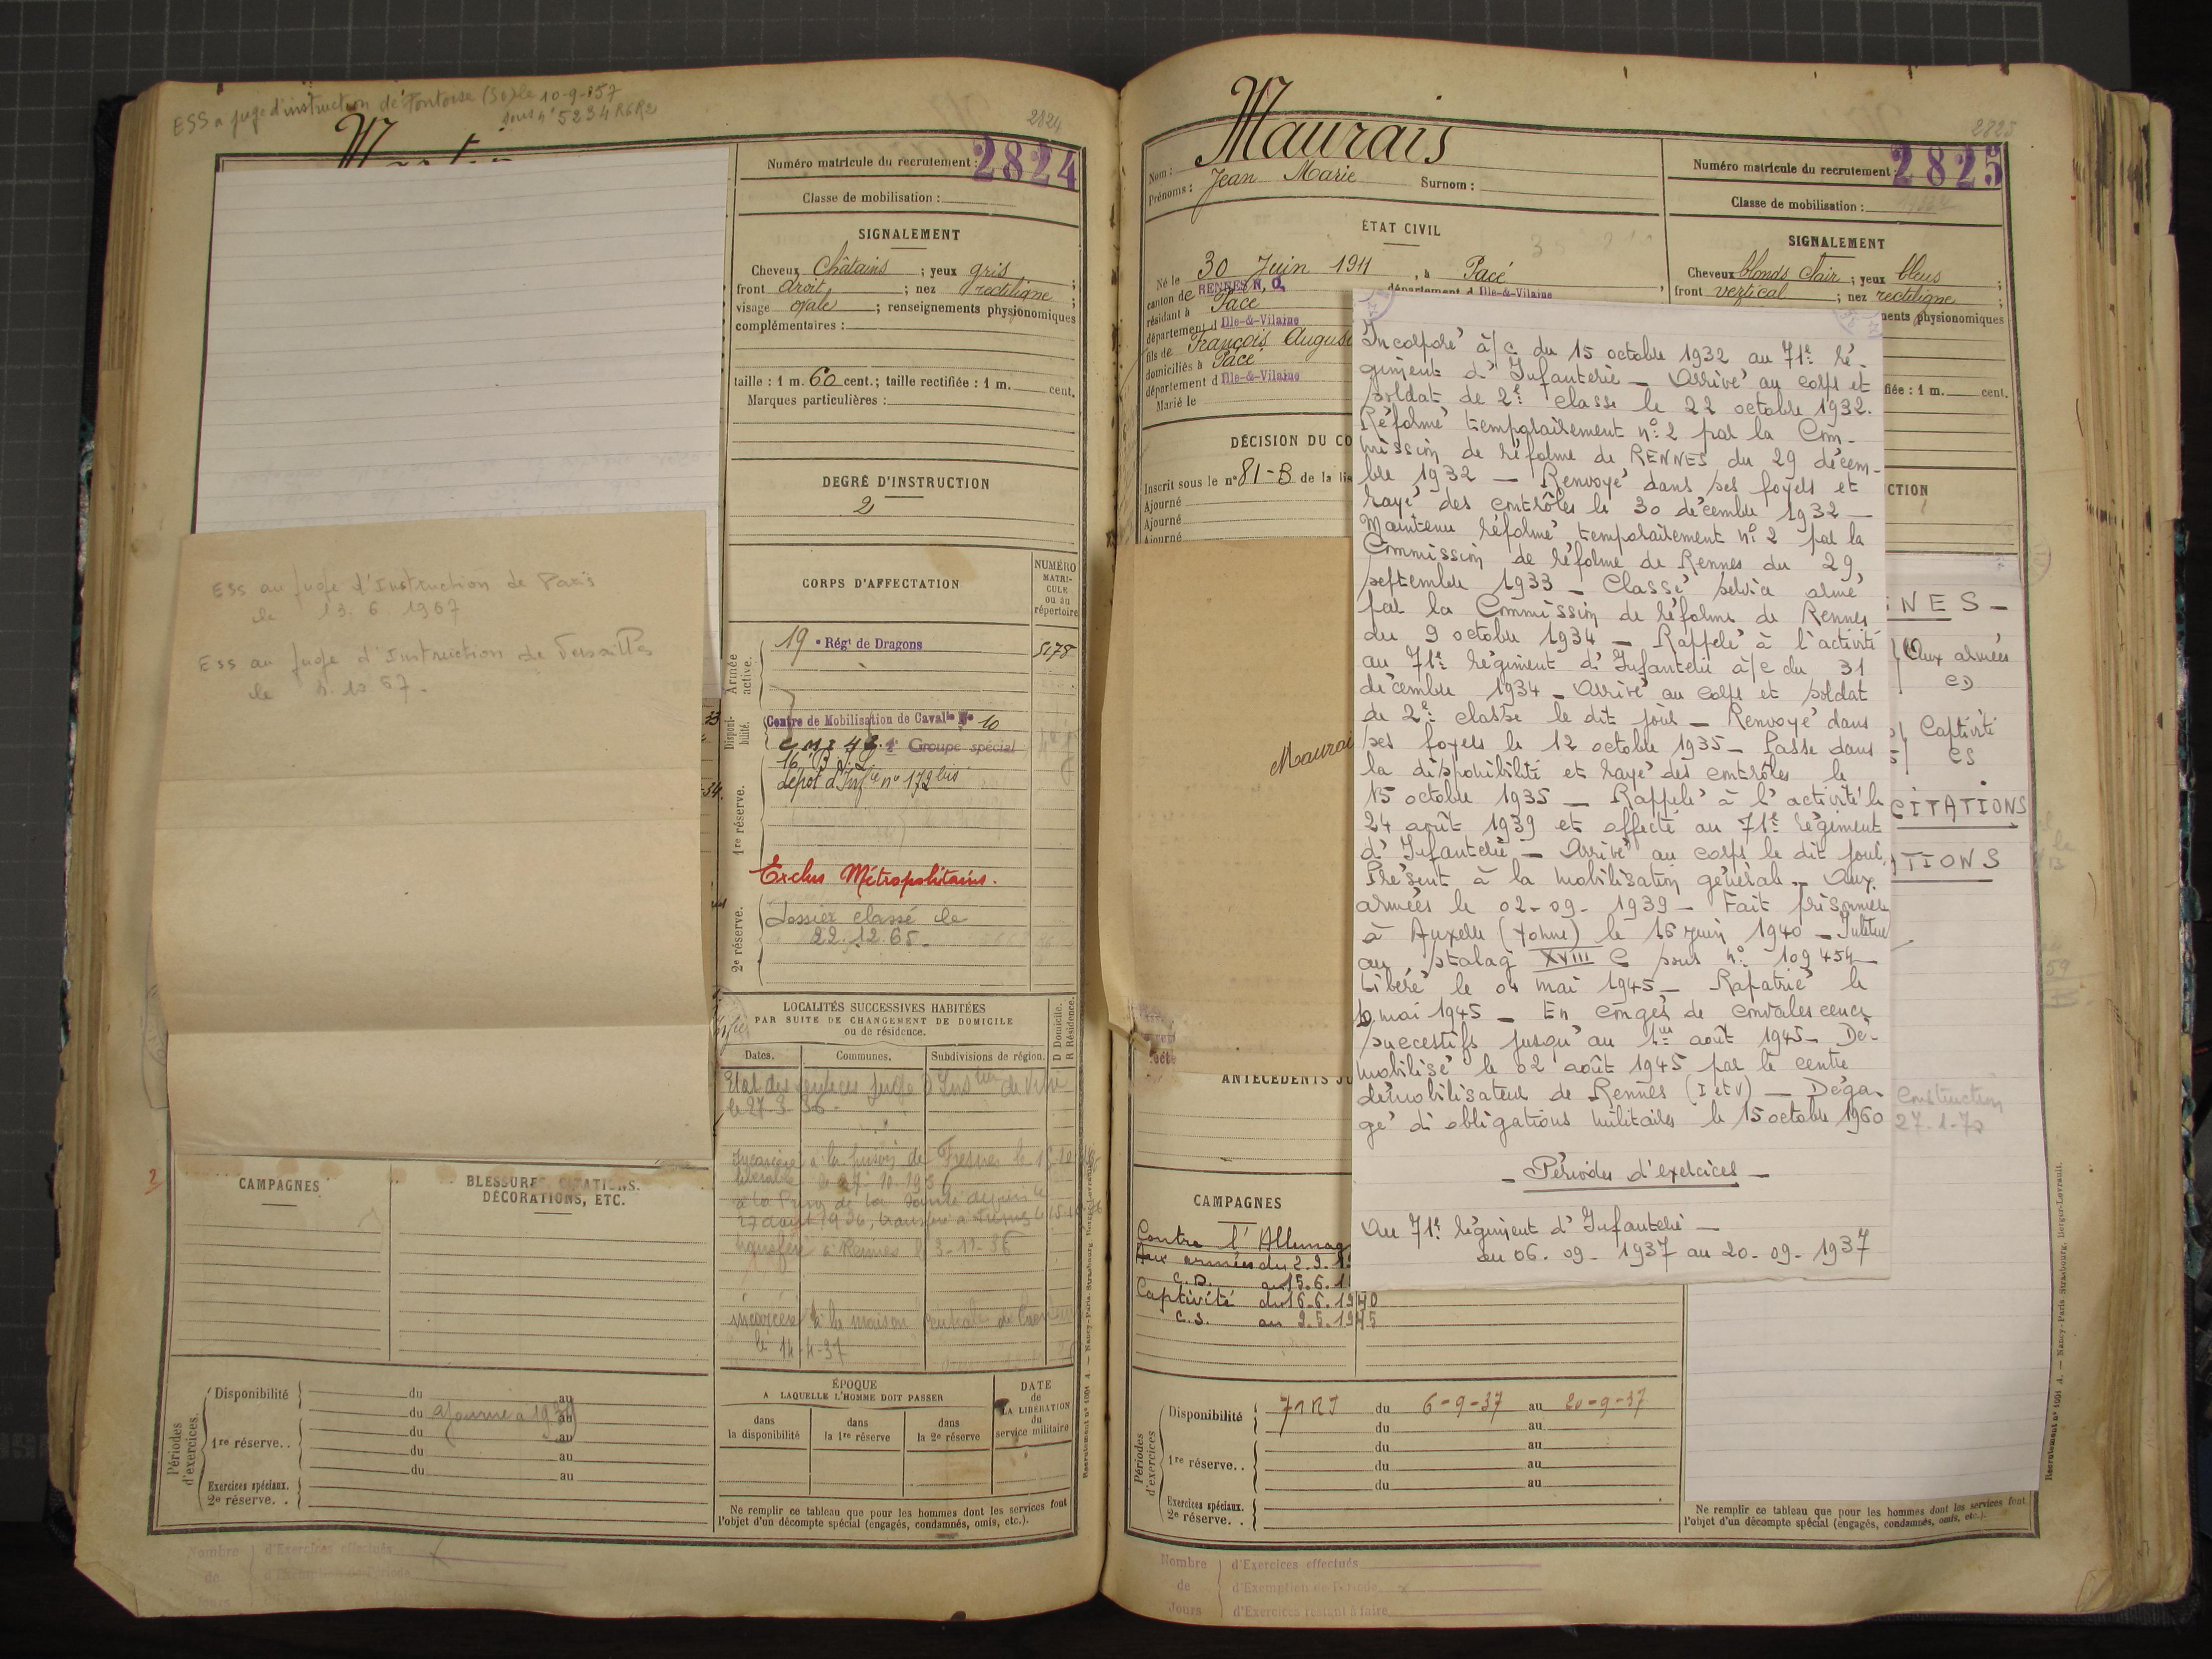 ESS a juge d'instruction de Pontoise (So) le 10-9-157
sous n° 5234 R6R2
2824
Numéro matricule du recrutement : 2824
Classe de mobilisation :
SIGNALEMENT
Cheveux Châtains ; yeux gris ;
front droit ; nez rectiligne ;
visage ovale ; renseignements physionomiques
complémentaires :
taille : 1 m. 60 cent.; taille rectifiée : 1 m. cent.
Marques particulières :
DEGRÉ D'INSTRUCTION
2
CORPS D'AFFECTATION
NUMÉRO
MATRI-
CULE
ou au
répertoire
ESS au juge d'Instruction de Paris
le 13. 6. 1967
ESS au juge d'Instruction de Versailles
Armée active.
19e Régt de Dragons
5178
Disponi-
bilité.
Centre de Mobilisation de Cavalie No 10
Groupe spécial
1re réserve.
dépot d'Infie n° 172 bis
Exclus Métropolitains.
2e réserve.
dossier classé le
22.12.65.
LOCALITÉS SUCCESSIVES HABITÉES
PAR SUITE DE CHANGEMENT DE DOMICILE
ou de résidence.
D Domicile.
R Résidence.
Dates.
Communes.
Subdivisions de région.
Incarcéré à la prison de Fresnes le
transféré à Rennes le 3-11-36
incarcéré à la maison centrale de
le 14-4-37
CAMPAGNES
BLESSURES, CITATIONS,
DÉCORATIONS, ETC.
Périodes
d'exercices.
Disponibilité
du au
du ajourné à 19 au
1re réserve. .
du au
du au
du au
Exercices spéciaux.
2e réserve. .
ÉPOQUE
A LAQUELLE L'HOMME DOIT PASSER
dans
la disponibilité
dans
la 1re réserve
dans
la 2e réserve
DATE
de
LA LIBÉRATION
du
service militaire
Ne remplir ce tableau que pour les hommes dont les services font
l'objet d'un décompte spécial (engagés, condamnés, omis, etc.).
Nombre
de
Jours
d'Exercices effectués
d'Exemption de Période
2825
Nom : Maurais
Prénoms : Jean Marie Surnom :
Numéro matricule du recrutement : 2825
Classe de mobilisation :
ÉTAT CIVIL
Né le 30 Juin 1911, à Pacé
canton de RENNES N. O. département d Ille-&-Vilaine
résidant à Pacé
département d Ille-&-Vilaine
fils de François Augus
domiciliés à Pacé
département d Ille-&-Vilaine
Marié le
SIGNALEMENT
Cheveux blonds clair ; yeux bleus
front vertical ; nez rectiligne ;
ments physionomiques
fiée : 1 m. cent.
DÉCISION DU CO
Inscrit sous le n° 81-B de la lis
Ajourné
Ajourné
Ajourné
CTION
Maurai
Incorporé à/c du 15 octobre 1932 au 71e: ré-
giment d'Infanterie – Arrivé au corps et
soldat de 2e: classe le 22 octobre 1932.
Réformé temporairement n° 2 par la Com-
mission de réforme de RENNES du 29 décem-
bre 1932 – Renvoyé dans ses foyers et
rayé des contrôles le 30 décembre 1932 –
Maintenu réformé temporairement n° 2 par la
Commission de réforme de Rennes du 29
septembre 1933 – Classé service armé
par la Commission de réforme de Rennes
du 9 octobre 1934 – Rappelé à l'activité
au 71e: régiment d'Infanterie à/c du 31
décembre 1934 – Arrivé au corps et soldat
de 2e: classe le dit jour – Renvoyé dans
ses foyers le 12 octobre 1935 – Passe dans
la disponibilité et rayé des contrôles le
15 octobre 1935 – Rappelé à l'activité le
24 août 1939 et affecté au 71e: régiment
d'Infanterie – Arrivé au corps le dit jour.
Présent à la mobilisation générale – Aux
armées le 02-09-1939 – Fait prisonnier
à Auxelle (Yonne) le 16 juin 1940 – Interné
au stalag XVIII C sous n° 109454 –
Libéré le 04 mai 1945 – Rapatrié le
mai 1945 – En congés de convalescence
successifs jusqu'au 1er août 1945 – Dé-
mobilisé le 02 août 1945 par le centre
démobilisateur de Rennes (I et V) – Déga-
gé d'obligations militaires le 15 octobre 1960
– Périodes d'exercices –
Au 71e: régiment d'Infanterie –
du 06. 09- 1937 au 20-09-1937
NES –
Aux armées
CD
Captivité
CS
CITATIONS
TIONS
27-1-72
ANTÉCÉDENTS JU
CAMPAGNES
Contre l'Allemag
Aux armées du 2.9.1
C.D. au 15.6.1
Captivité du 16.6.1940
C.S. au 9.5.1945
Périodes
d'exercices
Disponibilité
71 RI du 6-9-37 au 20-9-37
du au
1re réserve. .
du au
du au
du au
Exercices spéciaux.
2e réserve. .
Ne remplir ce tableau que pour les hommes dont les services font
l'objet d'un décompte spécial (engagés, condamnés, omis, etc.).
Recrutement n° 1001 A. — Nancy-Paris, Strasbourg, Berger-Levrault.
Nombre
de
Jours
d'Exercices effectués
d'Exemption de Période
d'Exercices restant à faire